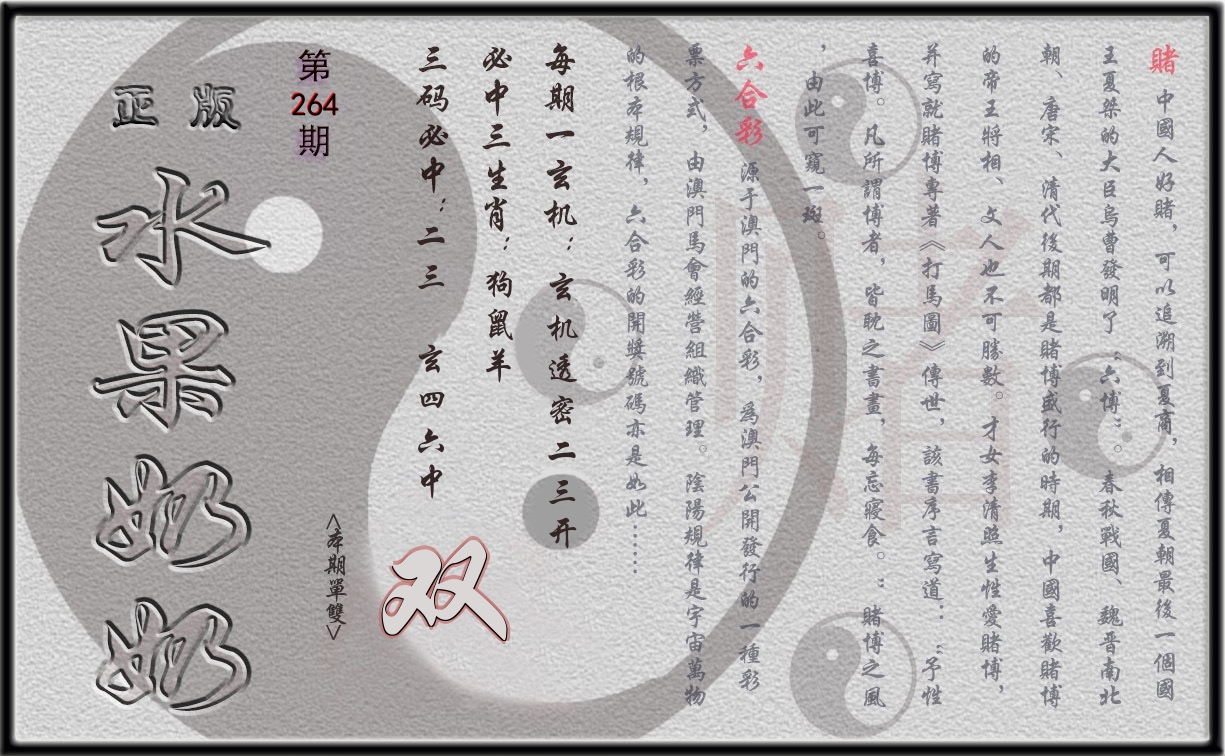 賭 中國人好賭，可以追溯到夏商，相傳夏朝最後一個國
王夏桀的大臣烏曹發明了“六博”。春秋戰國、魏晋南北
朝、唐宋、清代後期都是賭博盛行的時期，中國喜歡賭博
的帝王將相、文人也不可勝數。才女李清照生性愛賭博，
并寫就賭博專著《打馬圖》傳世，該書序言寫道：“予性
喜博。凡所謂博者，皆眈之書畫，每忘寢食。：賭博之風
，由此可窺一斑。
六合彩 源于澳門的六合彩，為澳門公開發行的一種彩
票方式，由澳門馬會經營組織管理。陰陽規律是宇宙萬物
的根本規律，六合彩的開獎號碼亦是如此……
每期一玄机：玄机透密二三开
必中三生肖：狗鼠羊
三码必中：二三 玄四六中
双
<本期單雙>
第264期
正版
水果奶奶
賭